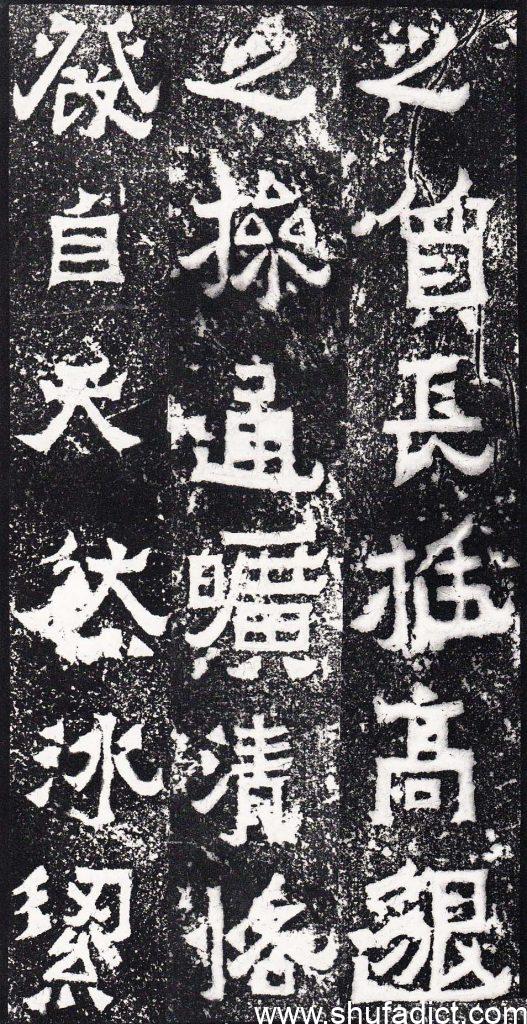 之質長挺高邈
之操通曠清恪
發自天然冰絜
www.shufadict.com